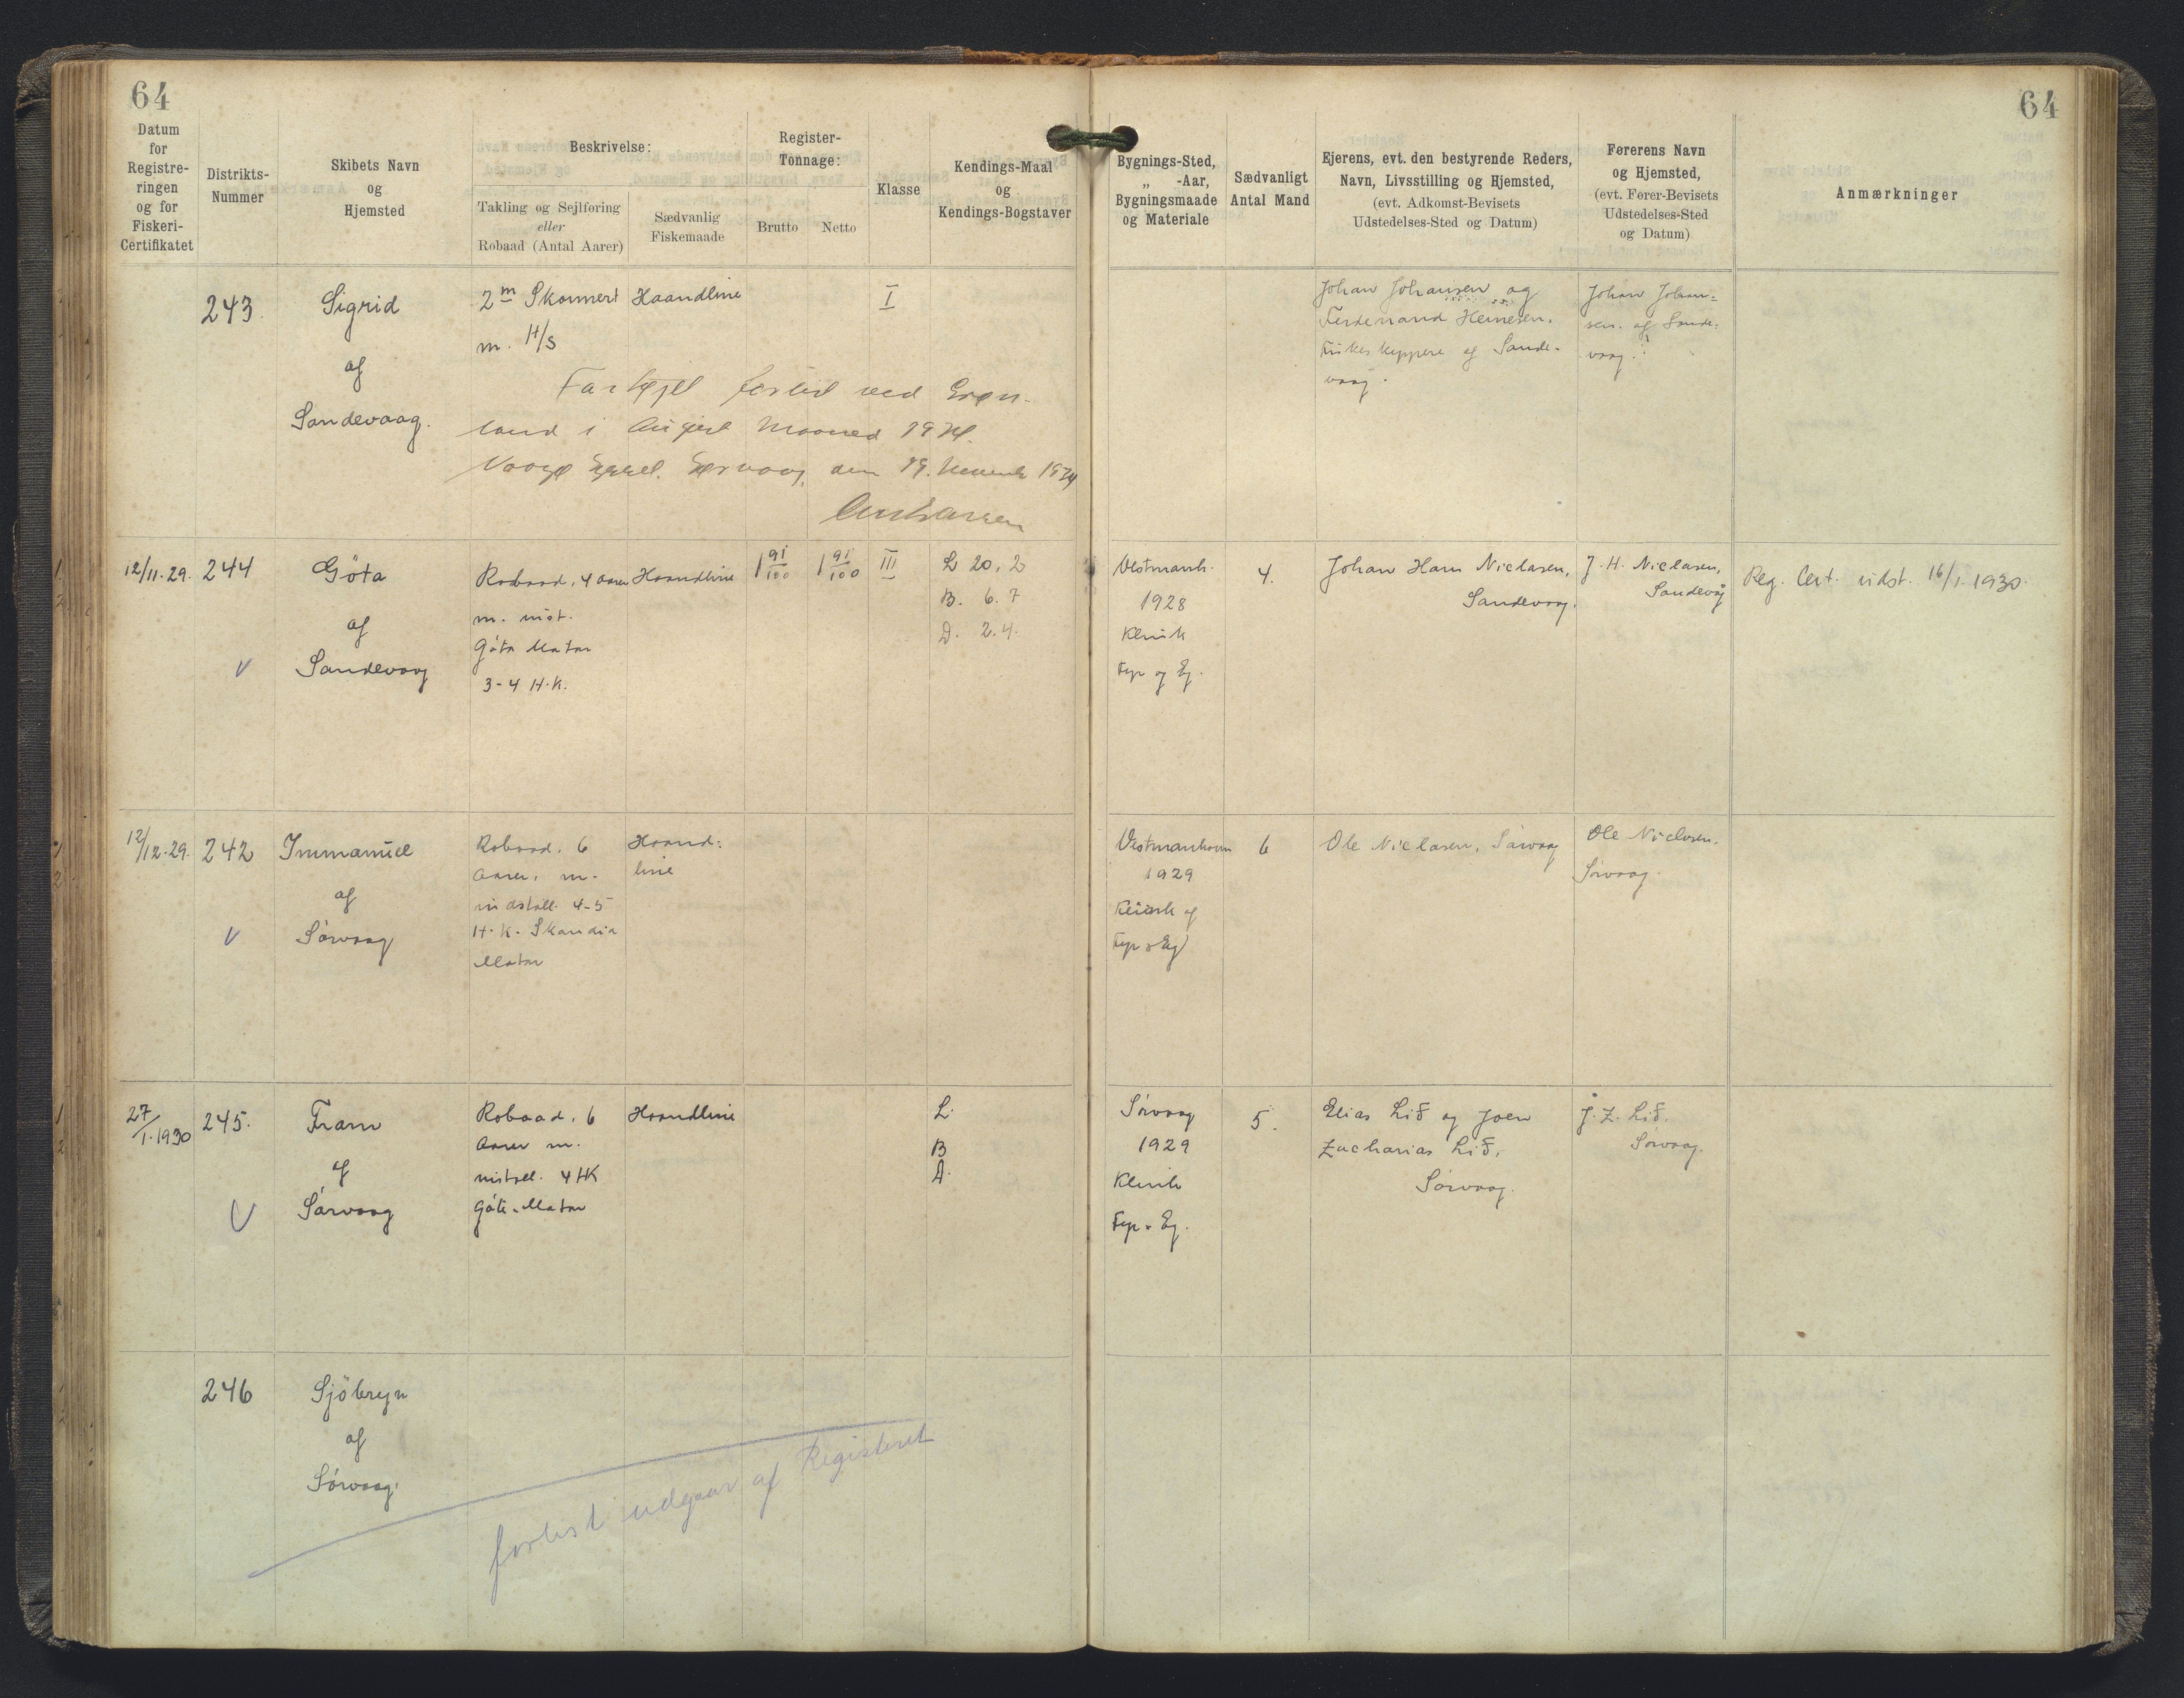 64
64
Datum
for
Registre-
ringen
og for
Fiskeri-
Certifikatet
Distrikts-
Nummer
Skibets Navn
og
Hjemsted
Beskrivelse:
Takling og Sejlføring
eller
Robaad (Antal Aarer)
Sædvanlig
Fiskemaade
Register-
Tonnage:
Brutto
Netto
Klasse
Kendings-Maal
og
Kendings-Bogstaver
Bygnings-Sted,
„ -Aar,
Bygningsmaade
og Materiale
Sædvanligt
Antal Mand
Ejerens, evt. den bestyrende Reders,
Navn, Livsstilling og Hjemsted,
(evt. Adkomst-Bevisets
Udstedelses-Sted og Datum)
Førerens Navn
og Hjemsted,
(evt. Fører-Bevisets
Udstedelses-Sted
og Datum)
Anmærkninger
243.
Sigrid
af
Sandevaag.
2 m Skonnert
m. H/S
Haandline
I
Fartøjet forlist ved Grøn-
land i August Maaned 1934.
Vaagø Syssel. Sørvaag, den 19. November 1934
Johan Johansen og
Ferdenand Heinesen.
Fiskeskippere af Sande-
vaag.
Johan Johan=
sen. af Sande=
vaag.
12/11-29.
244
Göta
af
Sandevaag
Robaad, 4 aarer
m. inst.
Göta Motor
3-4 H.K.
Haandline
1 91/100
1 91/100
III
L 20,2
B. 6.7
D. 2.4.
Vestmanh.
1928
Klink
Fyr og Eg.
4.
Johan Hans Niclasen,
Sandevaag.
J. H. Niclasen,
Sandevåg
Reg. Cert. udst. 16/1. 1930.
12/12-29.
242
Immanuel
af
Sörvaag
Robaad. 6
aarer, m.
indstall. 4-5
H.K. Skandia
Motor
Haand=
line
Vestmanhavn
1929
Klink af
Fyr & Eg
6
Ole Niclasen, Sörvaag
Ole Niclasen.
Sörvaag.
27/1.1930
245.
Fram
af
Sörvaag
Robaad. 6
aarer m.
install. 4 HK
Göta-Motor
Haandline
L.
B
D.
Sörvaag
1929
Klink
Fyr & Eg.
5.
Elias Lið og Joen
Zacharias Lið,
Sörvaag.
J. Z. Lið.
Sörvaag.
246
Sjöbryn
af
Sörvaag.
forlist udgaar af Registeret